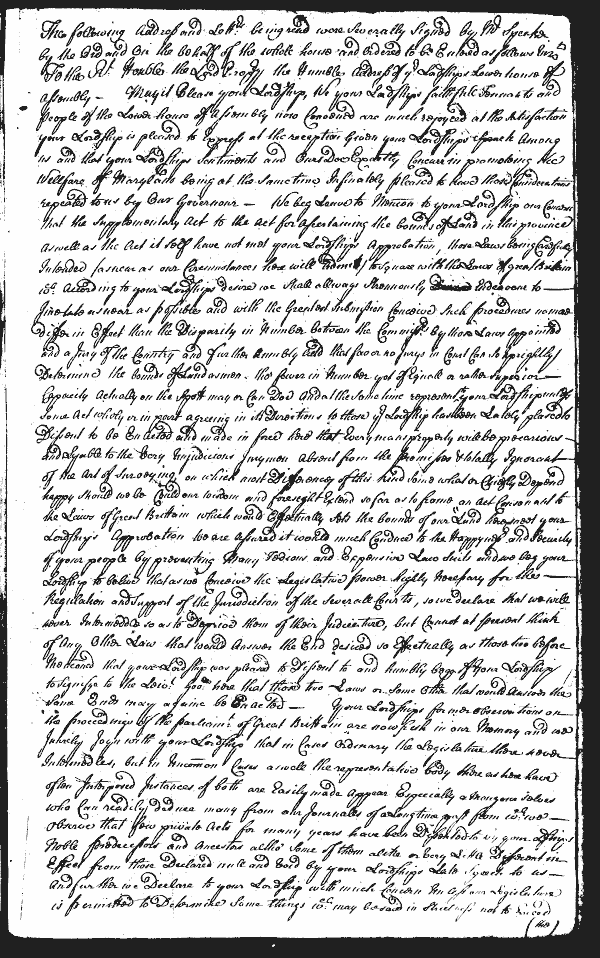 The following Address and Letter being read were Severally Signed by Mr Speaker
by the Ord and On the behalf of the whole house and Ordered to be Entered as follows Vizt
To the Rt Honble the Lord Propry the Humble Address of yr Ladships Lower house of
Assembly - May it Please your Lordship, We your Ladships faithfull Tennants and
People of the Lower house of Assembly now Convened are much rejoyced at the Satisfaction
your Lordship is pleased to Express at the reception Given your Lordships Speech Among
us and that your Lordships Sentiments and Ours Doe Exactly Concurr in promoteing the
Wellfare of Maryland being at the same time Infinately pleased to have those
repeated to us by Our Governour - We beg Leave to Mencon to your Lordship our Concern
that the Supplementary Act to the Act for Ascertaining the bounds of Land in this province
as well as the Act it self have not met your Lordships Approbation, those Laws being Carefully
Intended as near as our Circumstances here will admit, to Square with the Laws of great Brittain
wch According to your Lordships desire we Shall allways Strenuously Endeavour to
Imitate as near as possible and with the Greatest Submission Conceive Such procedures no more
differ in Effect than the Disparity in Number between the Commrs by those Laws Appointed
and a Jury of the Country and further humbly add that few or no Jurys in Court Can So uprightly
Determine the bounds of Land as men tho fewer in Number yet of Equall or rather Superior
Capacity Actually on the Spott may or Can Doe And at the Same time represent your Lordship unless
some Act wholy or in part agreeing in its Directions to those yr Lordship has been Lately pleased to
Dissent to be Enacted and made in force here that Every mans property will be precarious
and Lyable to the Very Injudicious Jurymen Absent from the Premisses & totally Ignorant
of the Art of Surveying, on which most Differences of this Kind Some what or Chiefly Depend
happy Should we be Could our wisdom and foresight Extend so far as to frame an Act Consonant to
the Laws of Great Brittain which would Effectually Settle the bounds of our Land here meet your
Lordship's Approbation We are Assured it would much Conduce to the Happyness and Security
of your people by preventing Many Tedious and Expensive Law Suits and we beg your
Lordship to beleive that as we Conceive the Legislative power highly Necessary for the
Regulation and Support of the Jurisdiction of the Severall Courts, so we declare that we will
never Intermeddle so as to Deprive them of their Judicature, but Cannot at present think
of Any Other Law that would Answer the End desired so Effectually as those two before
Mentioned that your Lordship was pleased to Dissent to and humbly begg of your Lordship
to signifye to the Lieut Govr here that those two Laws or Some Other that would Answer the
same Ends may again be Enacted - Your Lordships former observations on
the proceedings of the parliamt of Great Brittain are now fresh in our Memory and we
Intirely Joyn with your Lordship that in Cases Ordinary the Legislature there never
Intermedles, but in Uncommon Cases as well the representative body there as here have
often Interposed Instances of both are Easily made Appear Especially Amongst our selves
who Can readily deduce many from our Journalls of a Long time past from wch we
observe that few private Acts for many years have been Dissented to by your Lordships
Noble predecessors and Ancestors altho Some of them alike or very Little Different in
Effect from those Declared null and Void by your Lordships Late Speech to us
And further we Declare to your Lordship with much Concern Unless our Legislature
is permitted to Determine Some things wch may be said in Strictness not to Exceed
(the)